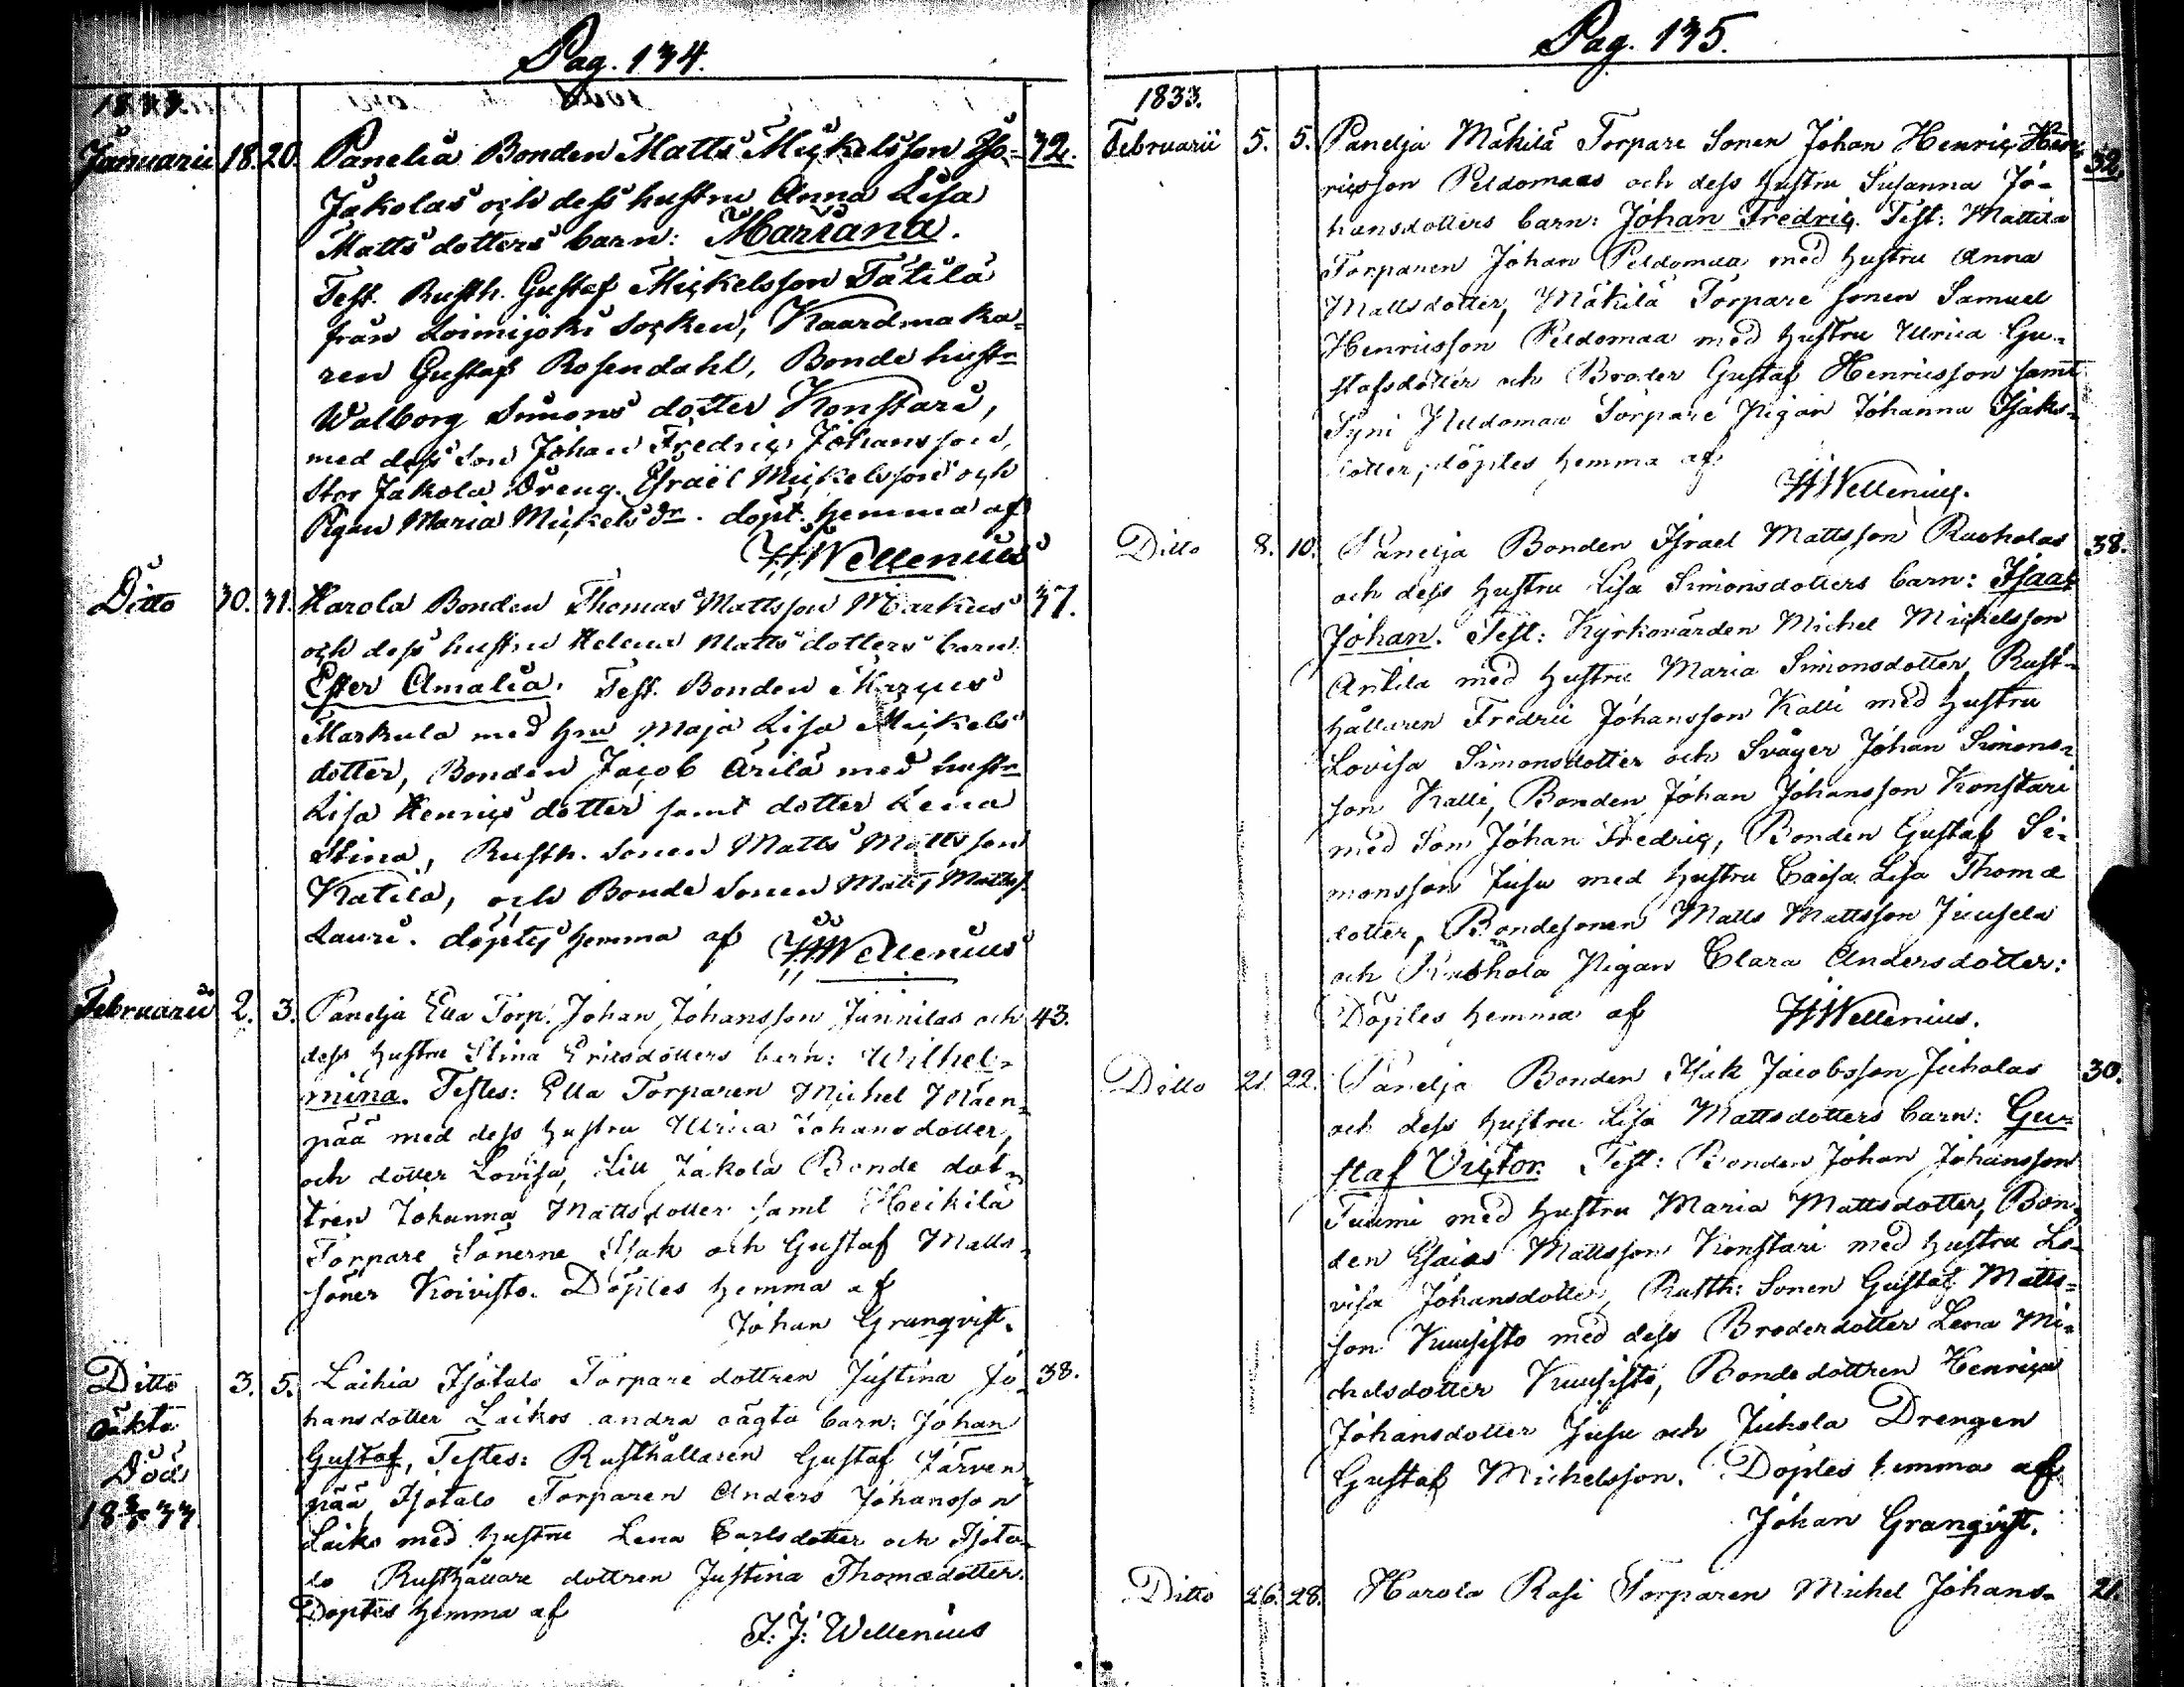 Pag. 134.
1833.
Januarii 18. 20. Panelia Bonden Matts Mickelsson Iso- 32.
Jakolas och dess hustru Anna Lisa
Matts dotters barn: Mariana.
Test. Rusth. Gustaf Mickelsson Tätilä
från Loimijoki Socken, Kaardmaka-
ren Gustaf Rosendahl, Bonde hustr
Walborg Simons dotter Konstari,
med dess Son Johan Fredric Johansson,
Stor Jakola Dreng. Israël Mickelsson och
Pigan Maria Mickels dr. döpt. hemma af
HWellenius
Ditto 30. 31. Harola Bonden Thomas Mattsson Markus 37.
och dess hustru Helena Matts dotters barn
Ester Amalia. Test. Bonden Marcus
Markula med hru Maja Lisa Mickels
dotter, Bonden Jacob Arila med hustr
Lisa Henrics dotter samt dotter Lena
Stina, Rusth. Sonen Matts Mattsson
Katila, och Bonde Sonen Matts Matts.
Lauri. döptes hemma af HWellenius
Februarii 2. 3. Panelja Ella Torp. Johan Johansson Junnilas och 43.
dess hustru Stina Ericsdotters barn: Wilhel-
mina. Testes: Ella Torparen Michel Mäen-
pää med dess hustru Ulrica Johansdotter,
och dotter Lovisa, Lill Jakola Bonde dot-
tren Johanna Mattsdotter samt Heikilä
Torpare Sönerne Isak och Gustaf Matts-
söner Koivisto. Döptes hemma af
Johan Granqvist.
Ditto 3. 5. Laihia Isotalo Torpare dottren Justina Jo- 38.
oäkta
Död
18 3/3 33.
hansdotter Laikos andra oägta barn: Johan
Gustaf, Testes: Rusthållaren Gustaf Järven-
pää, Isotalo Torparen Anders Johansson
Laiko med hustru Lena Carlsdotter och Isota-
lo Rusthållare dottren Justina Thomædotter.
Döptes hemma af
F: J: Wellenius
Pag. 135.
1833.
Februarii 5. 5. Panelja Mäkilä Torpare Sonen Johan Henric Hen- 32.
ricsson Peldomaas och dess hustru Susanna Jo-
hansdotters barn: Johan Fredric. Test: Mattila
Torparen Johan Peldomaa med hustru Anna
Mattsdotter, Mäkilä Torpare sonen Samuel
Henricsson Peldomaa med hustru Ulrica Gu-
stafsdotter och Broder Gustaf Henricsson samt
Peldomaa Torpare Pigan Johanna Isaks-
dotter, döptes hemma af
HWellenius.
Ditto 8. 10. Panelja Bonden Israel Mattsson Ruoholas 38.
och dess hustru Lisa Simonsdotters barn: Isaak
Johan. Test: Kyrkovärden Michel Mickelsson
Antila med hustru Maria Simonsdotter, Rust-
hållaren Fredric Johansson Kalli med hustru
Lovisa Simonsdotter och Svåger Johan Simons-
son Kalli, Bonden Johan Johansson Konstari
med Son Johan Fredric, Bonden Gustaf Si-
monsson Jusu med hustru Caisa Lisa Thomæ
dotter, Bondesonen Matts Mattsson Juusela
och Ruohola Pigan Clara Andersdotter:
Döptes hemma af HWellenius.
Ditto 21. 22. Panelja Bonden Isak Jacobsson Juholas 30.
och dess hustru Lisa Mattsdotters barn: Gu-
staf Victor. Test: Bonden Johan Johansson
Tuumi med hustru Maria Mattsdotter, Bon-
den Esaias Mattsson Konstari med hustru Lo-
visa Johansdotter, Rusth: Sonen Gustaf Matts-
son Kuusisto med dess Broderdotter Lena Mi-
chelsdotter Kuusisto, Bonde dottren Henrica
Johansdotter Jusu och Juhola Drengen
Gustaf Michelsson. Döptes hemma af
Johan Granqvist.
Ditto 26. 28. Harola Rasi Torparen Michel Johans- 21.